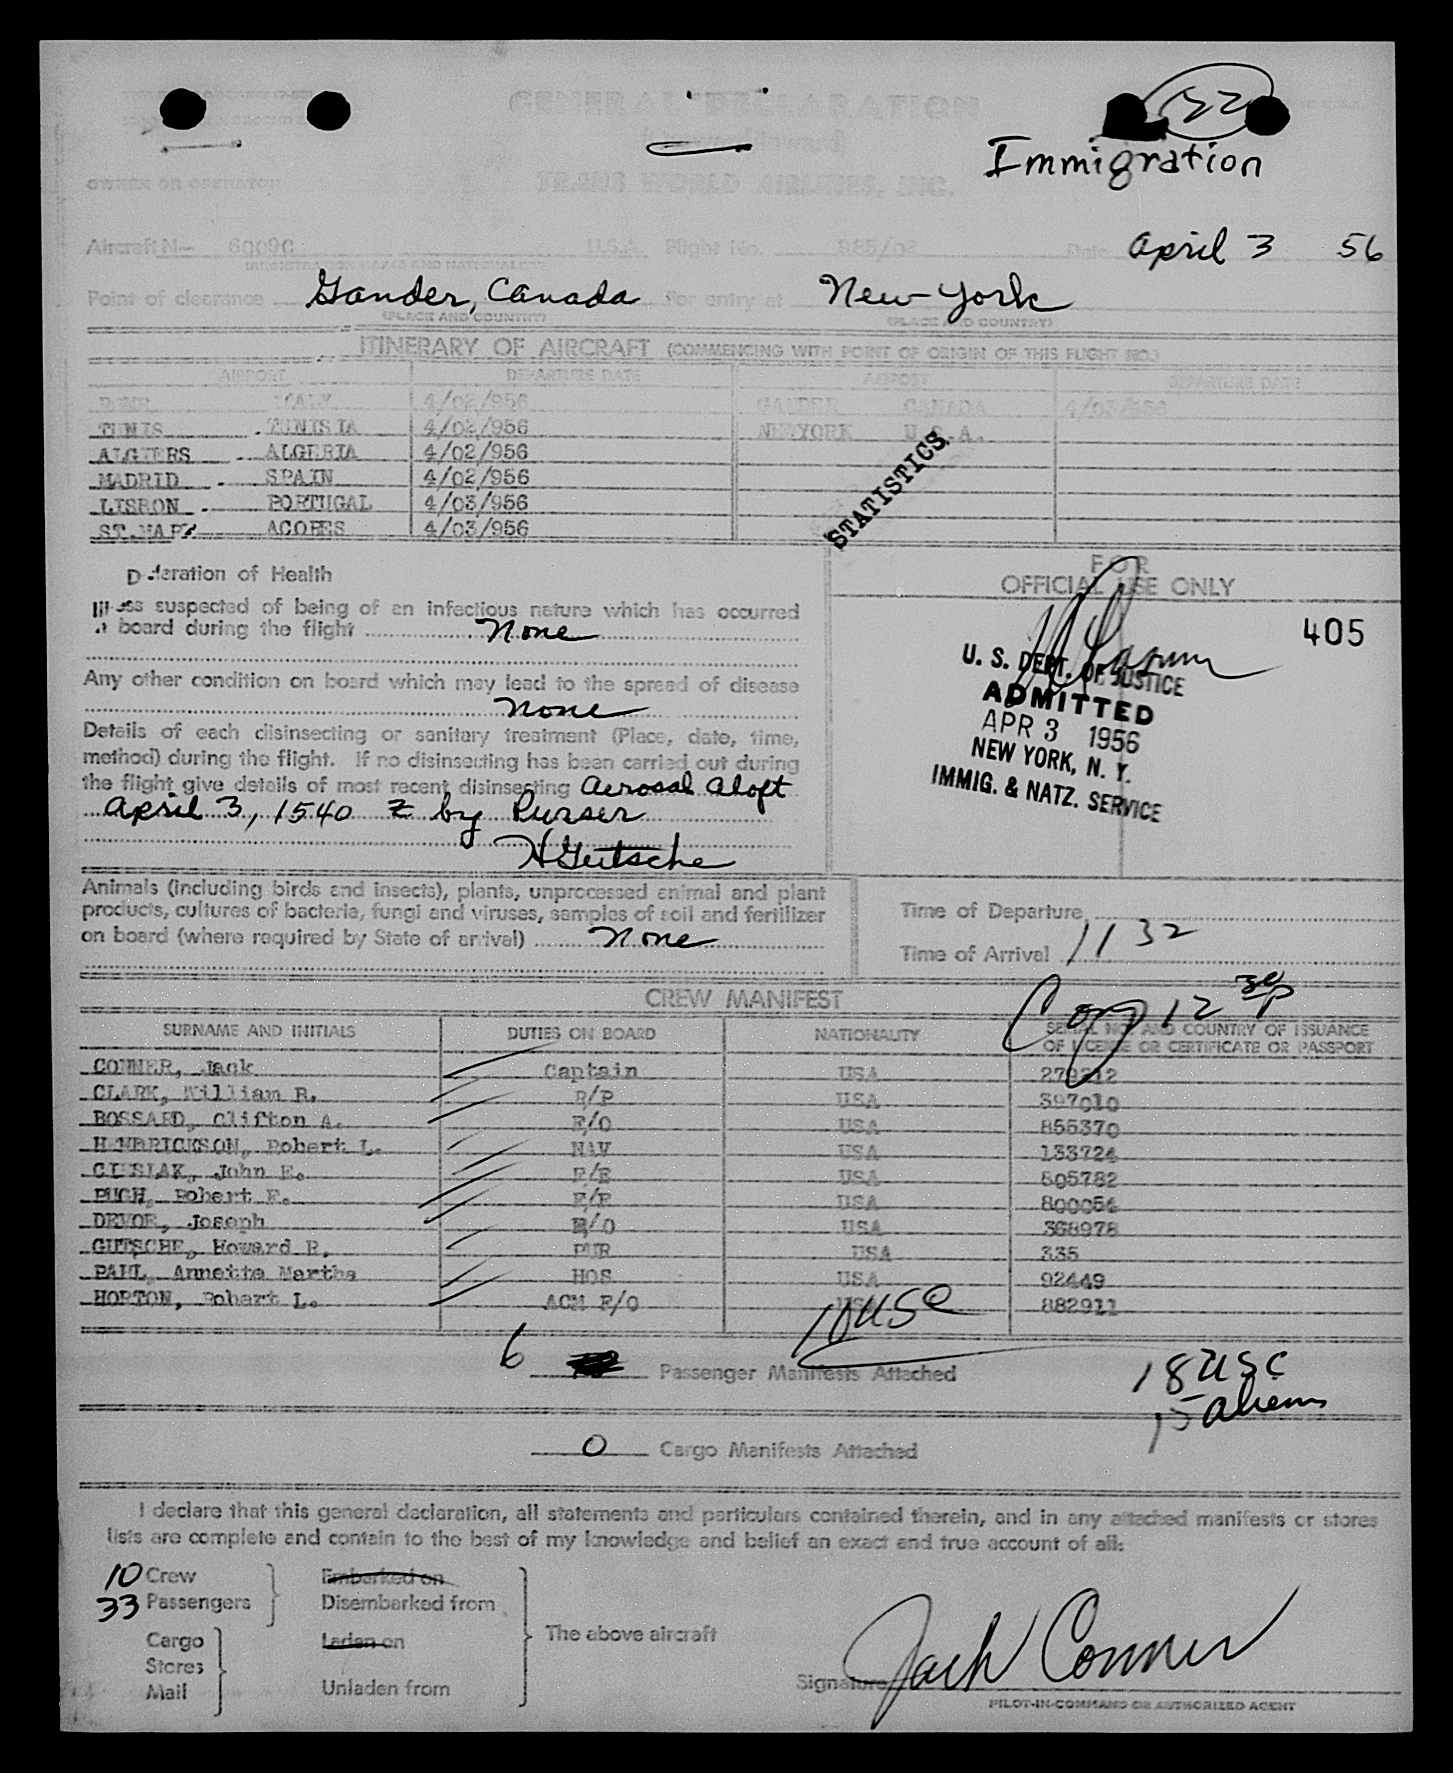 GENERAL DECLARATION
(Outward/Inward)
Immigration
OWNER OR OPERATOR TRANS WORLD AIRLINES, INC.
Aircraft N- 6009C U.S.A. Flight No. Date April 3 56
Point of clearance Gander, Canada For entry at New York
(PLACE AND COUNTRY) (PLACE AND COUNTRY)
ITINERARY OF AIRCRAFT (COMMENCING WITH POINT OF ORIGIN OF THIS FLIGHT NO.)
AIRPORT DEPARTURE DATE AIRPORT DEPARTURE DATE
ROME ITALY 4/02/956 GANDER CANADA 4/03/956
TUNIS TUNISIA 4/02/956 NEWYORK U.S.A.
ALGIERS ALGERIA 4/02/956
MADRID SPAIN 4/02/956
LISBON PORTUGAL 4/03/956
ST.MARY ACORES 4/03/956
STATISTICS
Declaration of Health
Illness suspected of being of an infectious nature which has occurred
on board during the flight None
Any other condition on board which may lead to the spread of disease
None
Details of each disinsecting or sanitary treatment (Place, date, time,
method) during the flight. If no disinsecting has been carried out during
the flight give details of most recent disinsecting Aerosal aloft
April 3, 1540 Z by Purser
H Gutsche
FOR
OFFICIAL USE ONLY
405
U. S. DEPT. OF JUSTICE
ADMITTED
APR 3 1956
NEW YORK, N. Y.
IMMIG. & NATZ. SERVICE
Animals (including birds and insects), plants, unprocessed animal and plant
products, cultures of bacteria, fungi and viruses, samples of soil and fertilizer
on board (where required by State of arrival) None
Time of Departure
Time of Arrival 1132
CREW MANIFEST
12 30 P
SURNAME AND INITIALS DUTIES ON BOARD NATIONALITY SERIAL NO. AND COUNTRY OF ISSUANCE
OF LICENSE OR CERTIFICATE OR PASSPORT
CONNER, Jack Captain USA 279212
CLARK, William R. R/P USA 397010
BOSSARD, Clifton A. F/O USA 855370
HENDRICKSON, Robert L. NAV USA 133724
CIESLAK, John E. F/E USA 505782
PUGH, Robert F. F/E USA 800056
DEVOE, Joseph R/O USA 368978
GUTSCHE, Howard R. PUR USA 335
PAHL, Annette Martha HOS USA 92449
HORTON, Robert L. ACM F/O USA 882911
10 USC
6 Passenger Manifests Attached
18 USC
15 aliens
0 Cargo Manifests Attached
I declare that this general declaration, all statements and particulars contained therein, and in any attached manifests or stores
lists are complete and contain to the best of my knowledge and belief an exact and true account of all:
10 Crew Embarked on
33 Passengers Disembarked from
The above aircraft
Cargo Laden on
Stores
Mail Unladen from
Signature Jack Conner
PILOT-IN-COMMAND OR AUTHORIZED AGENT